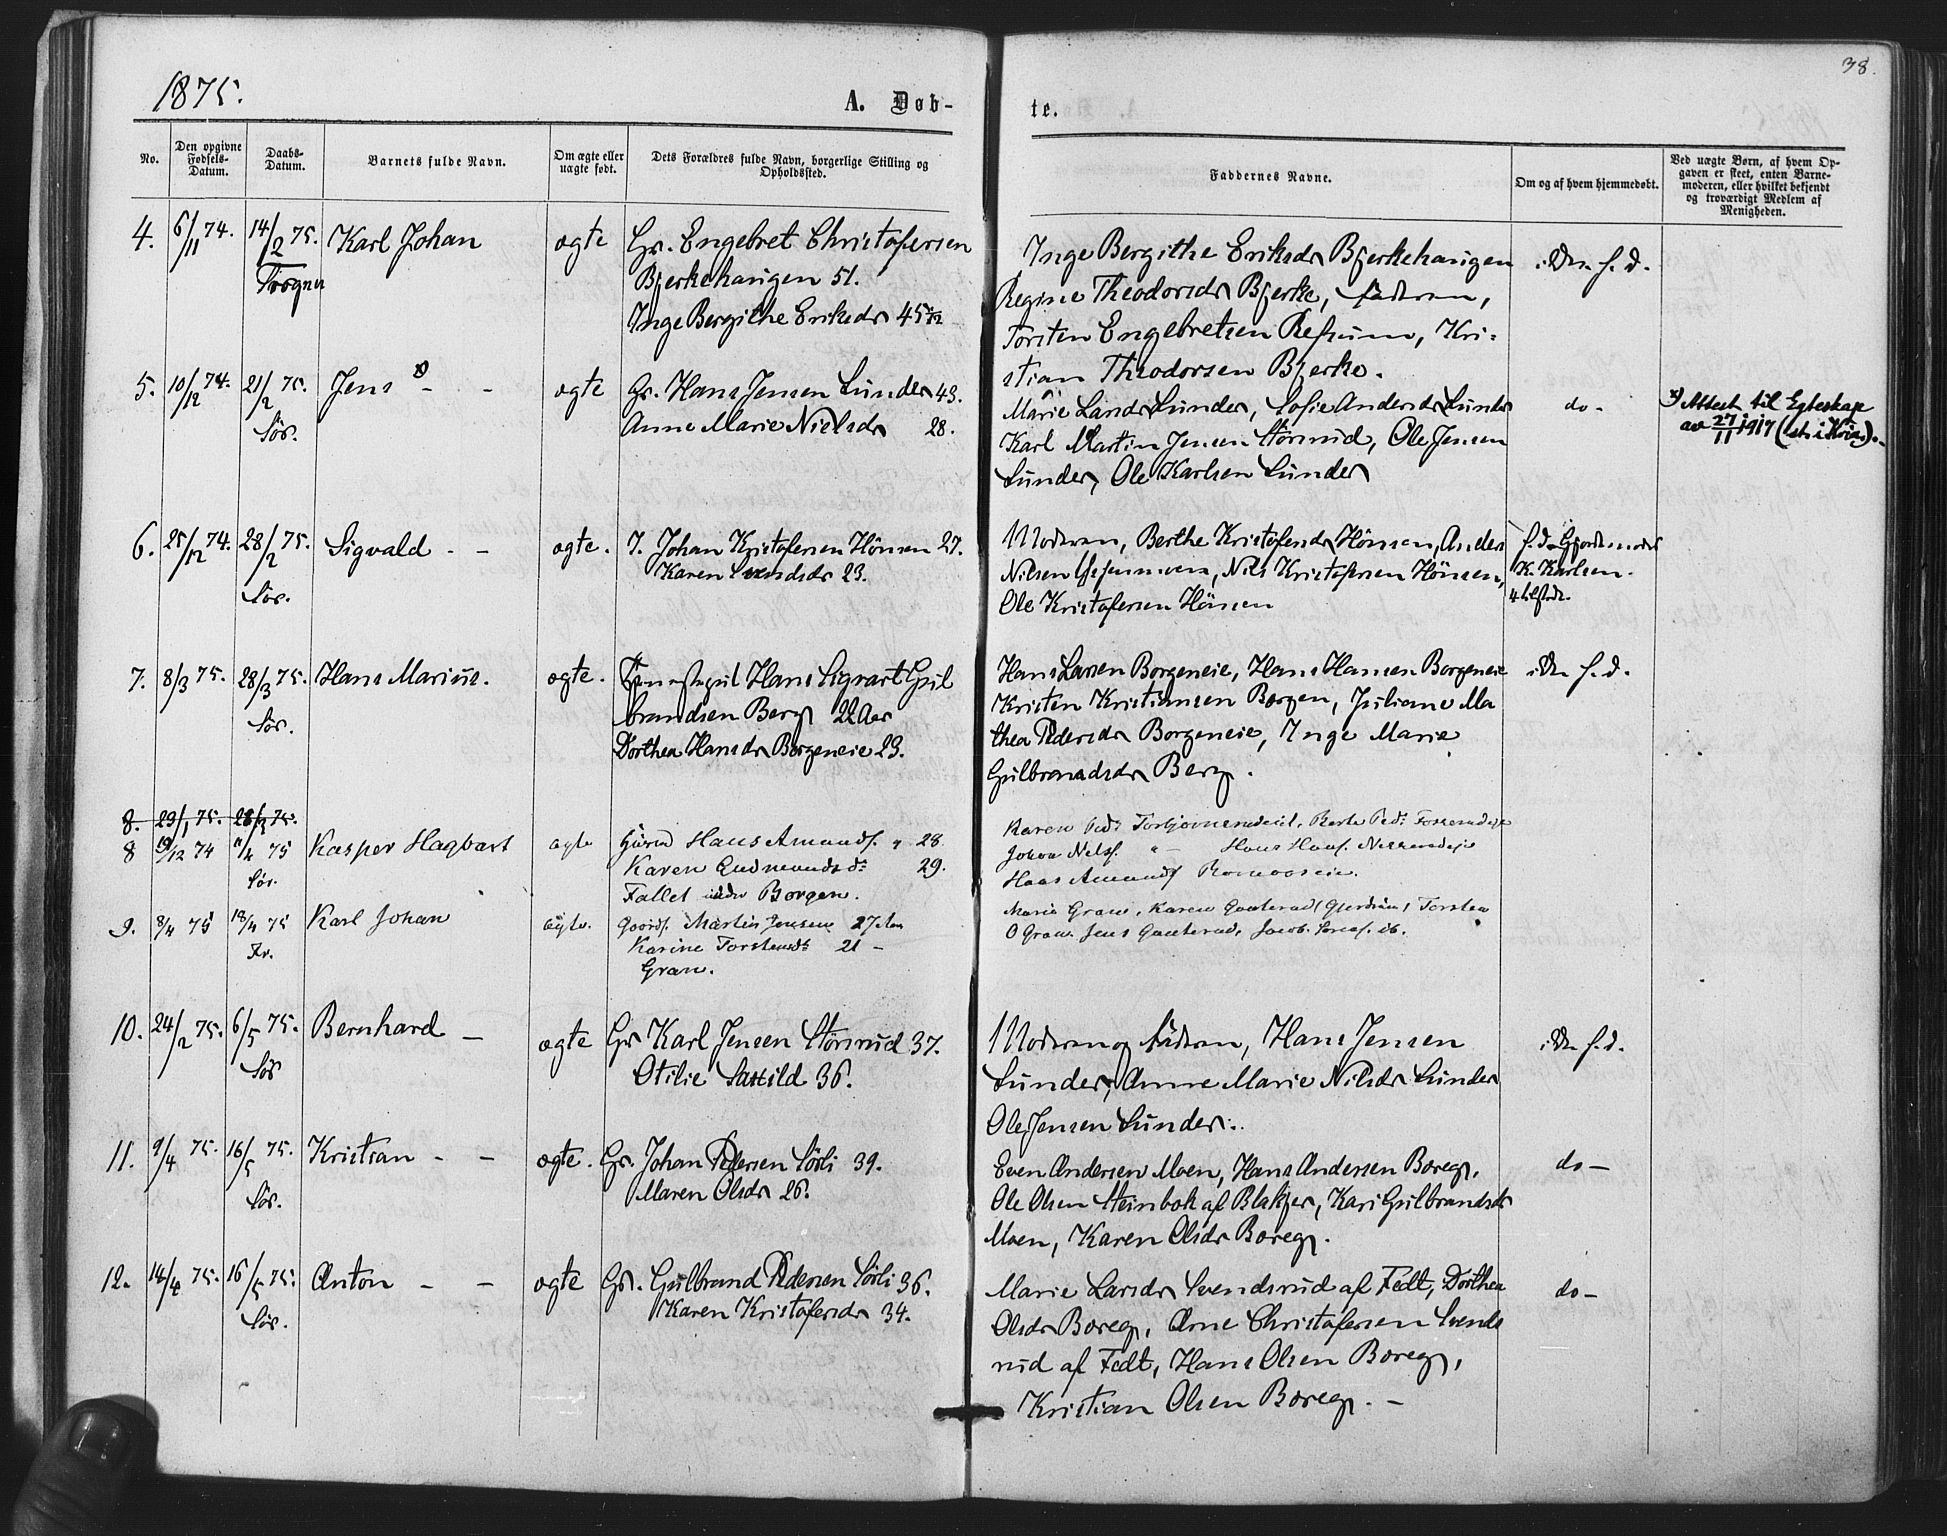 1875.
A. Døb-
te.
38.
No.
Den opgivne
Fødsels-
Datum.
Daabs-
Datum.
Barnets fulde Navn.
Om ægte eller
uægte født.
Dets Forældres fulde Navn, borgerlige Stilling og
Opholdssted.
Faddernes Navne.
Om og af hvem hjemmedøbt.
Ved uægte Børn, af hvem Op-
gaven er skeet, enten Barne-
moderen, eller hvilket bekjendt
og troværdigt Medlem af
Menigheden.
4. 6/11 74. 14/2 75. Karl Johan ægte Gr. Engebret Christofersen
Frogner
Bjerkehaugen 51.
Inge Bergithe Eriksdr 45
Inge Bergithe Eriksdr Bjerkehaugen
Regine Theodorsdr Bjerke, Faderen,
Torsten Engebretsen Refsum, Kri-
stian Theodorsen Bjerke.
i Kn f. d.
5. 10/12 74. 21/2 75. Jens - - ægte Gr. Hans Jensen Lunder 43.
Sør. Anne Marie Nielsdr 28.
Marie Larsdr Lunder, Sofie Andersdr Lunder
Karl Martin Jensen Størsrud, Ole Jensen
Lunder, Ole Karlsen Lunder
do -
Attest til Egteskap
av 27/11 1917
6. 25/12 74. 28/2 75. Sigvald - - ægte. I. Johan Kristofersen Hönsen 27.
Sør. Karen Svendsdr 23.
Moderen, Berthe Kristofersdr Hönsen, Anders
Nilsen, Nils Kristofersen Hönsen,
Ole Kristofersen Hönsen
f. d. Gjordemoder
K. Karlsen.
7. 8/3 75. 28/3 75. Hans Marius. ægte. Hans Sigvart Gul
Sør. brandsen Berg 22 Aar
Dorthea Hansdr Borgeneie 23.
Hans Larsen Borgeneie, Hans Hansen Borgeneie
Kristen Kristiansen Borgen, Juliane Ma
thea Pedersdr Borgeneie, Inge Marie
Gulbrandsdr Berg.
i Kn f. d.
8. 29/1 75. 28/3 75.
8 19/12 74 11/4 75 Kasper Hagbart ægte Hans Amunds. 28.
Sør. Karen Gudmundsdr 29.
Fallet under Borgen.
Johan Nels.
Hans Amunds
9. 8/4 75 18/4 75 Karl Johan ægte. Gaards. Martin Jensen 27 Aar
Fr. Karine Torstensdr 21 -
Gran.
Marie Gran, Karen Gauterud, Torsten
O Gran. Jens Gauterud, Jacob
10. 24/2 75. 6/5 75. Bernhard - ægte Gr Karl Jensen Størsrud 37.
Sør Otilie 36.
Moderen og Faderen, Hans Jensen
Lunder, Anne Marie Nilsdr Lunder
Ole Jensen Lunder.
i Kn f. d.
11. 9/4 75. 16/5 75. Kristian - - ægte. Gr. Johan Pedersen Sørli 39.
Sør. Maren Olsdr 26.
Even Andersen Moen, Hans Andersen Boreg,
Ole Olsen Steinbok af Blakjer, Kari Gulbrandsdr
Moen, Karen Olsdr Boreg.
do -
12. 14/4 75. 16/5 75. Anton - - ægte Gr. Gulbrand Pedersen Sørli 36.
Sør. Karen Kristofersdr 34.
Marie Larsdr Svendsrud af Fedt, Dorthea
Olsdr Boreg, Arne Christofersen Svends
rud af Fedt, Hans Olsen Boreg,
Kristian Olsen Boreg. -
do -